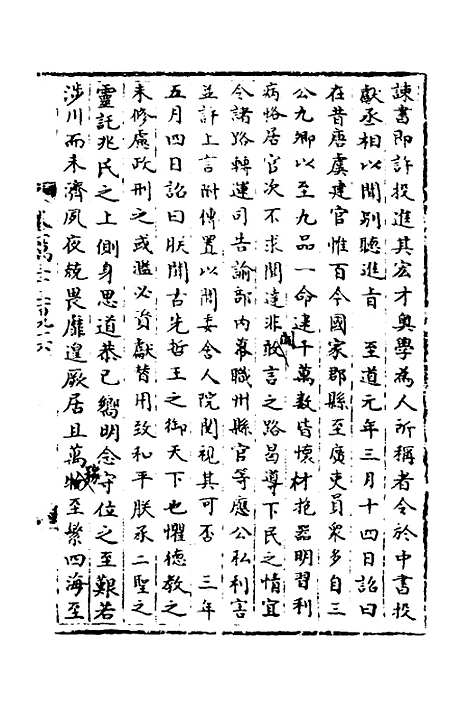 諫書即許投進其宏才奥學為人所稱者令於中書投
獻丞相以聞別聽進旨　至道元年三月十四日詔曰
在昔唐虞建官惟百今國家郡縣至廣吏員衆多自三
公九卿以至九品一命逮千萬數皆懷材抱器明習利
病恪居官次不求聞達非敢言之路曷導下民之情宜
開
令諸路轉運司告諭部内幕職州縣官等應公私利害
並許上言附傳置以聞委舍人院閱視其可否　三年
五月四日詔曰朕聞古先哲王之御天下也懼德教之
未修慮政刑之或濫必資獻替用致和平朕承二聖之
靈託兆民之上側身思道恭己嚮明念守位之至艱若
涉川而未濟夙夜兢畏靡遑厥居且萬至繁四海至
卷萬